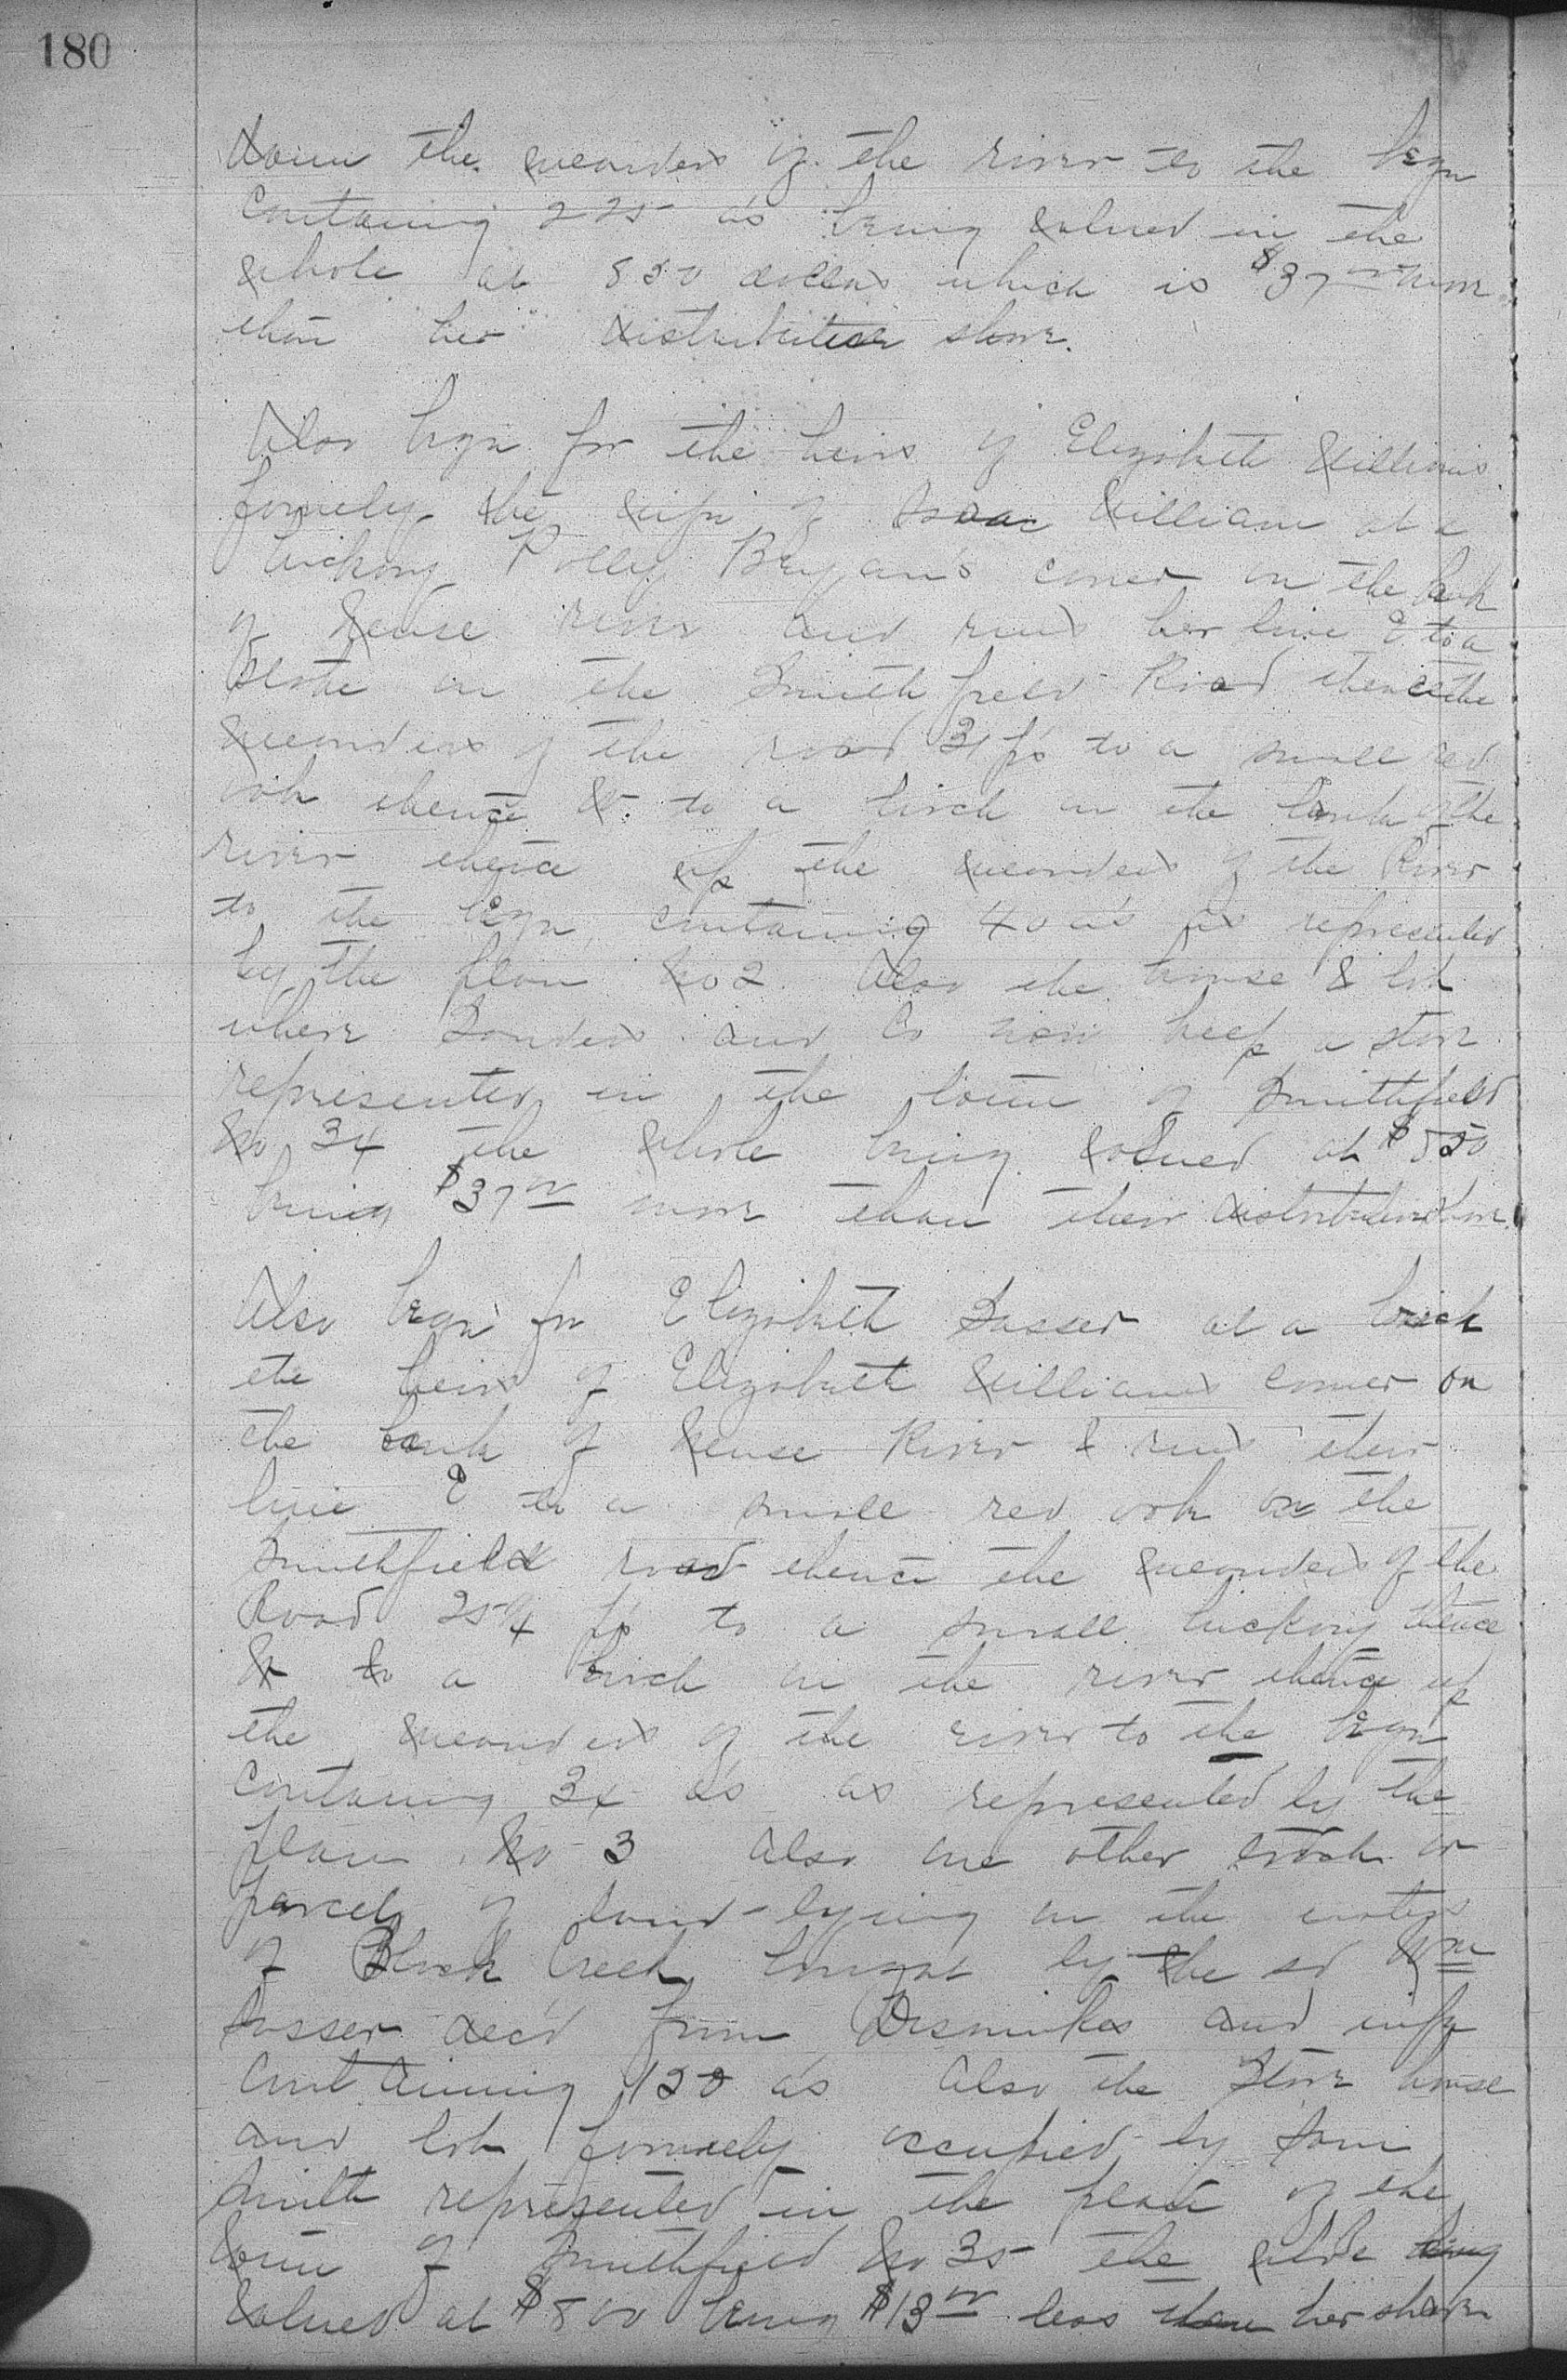 180
down the meanders of the river to the begn
containing 225 a's being valued in the
whole at 850 dollars which is $37 00 more
than her distributive share.
Also begn for the heirs of Elizabeth Williams
formely the wife of Isaac William at a
hickory Polly Bryan's corner on the bank
of Neuse river and runs her line E to a
stake on the Smithfield Road thence the
meanders of the road 31 p's to a small red
oak thence W. to a birch on the bank of the
river thence up the meanders of the River
to the begn containing 40 a's as represented
by the plan No 2 Also the house & lot
where Sanders and Co now keep a store
represented in the town of Smithfield
No 34 the whole being valued at $850
being $37 00 more than their distributive share.
Also begn for Elizabeth Sasser at a birch
the heirs of Elizabeth Williams corner on
the bank of Neuse River & runs their
line E to a small red oak on the
Smithfield road thence the meanders of the
Road 25 1/4 p's to a small hickory thence
W to a birch on the river thence up
the meanders of the river to the begn
containing 34 a's as represented by the
plan No 3 also one other track or
parcel of land lying on the waters
of Black Creek bought by the sd Wm
Sasser dec'd from Dismukes and wife
containing 120 a's Also the Store house
and lot formely occupied by Sam
Smith represented in the plan of the
town of Smithfield No 35 the whole being
valued at $800 being $13 00 less than her share